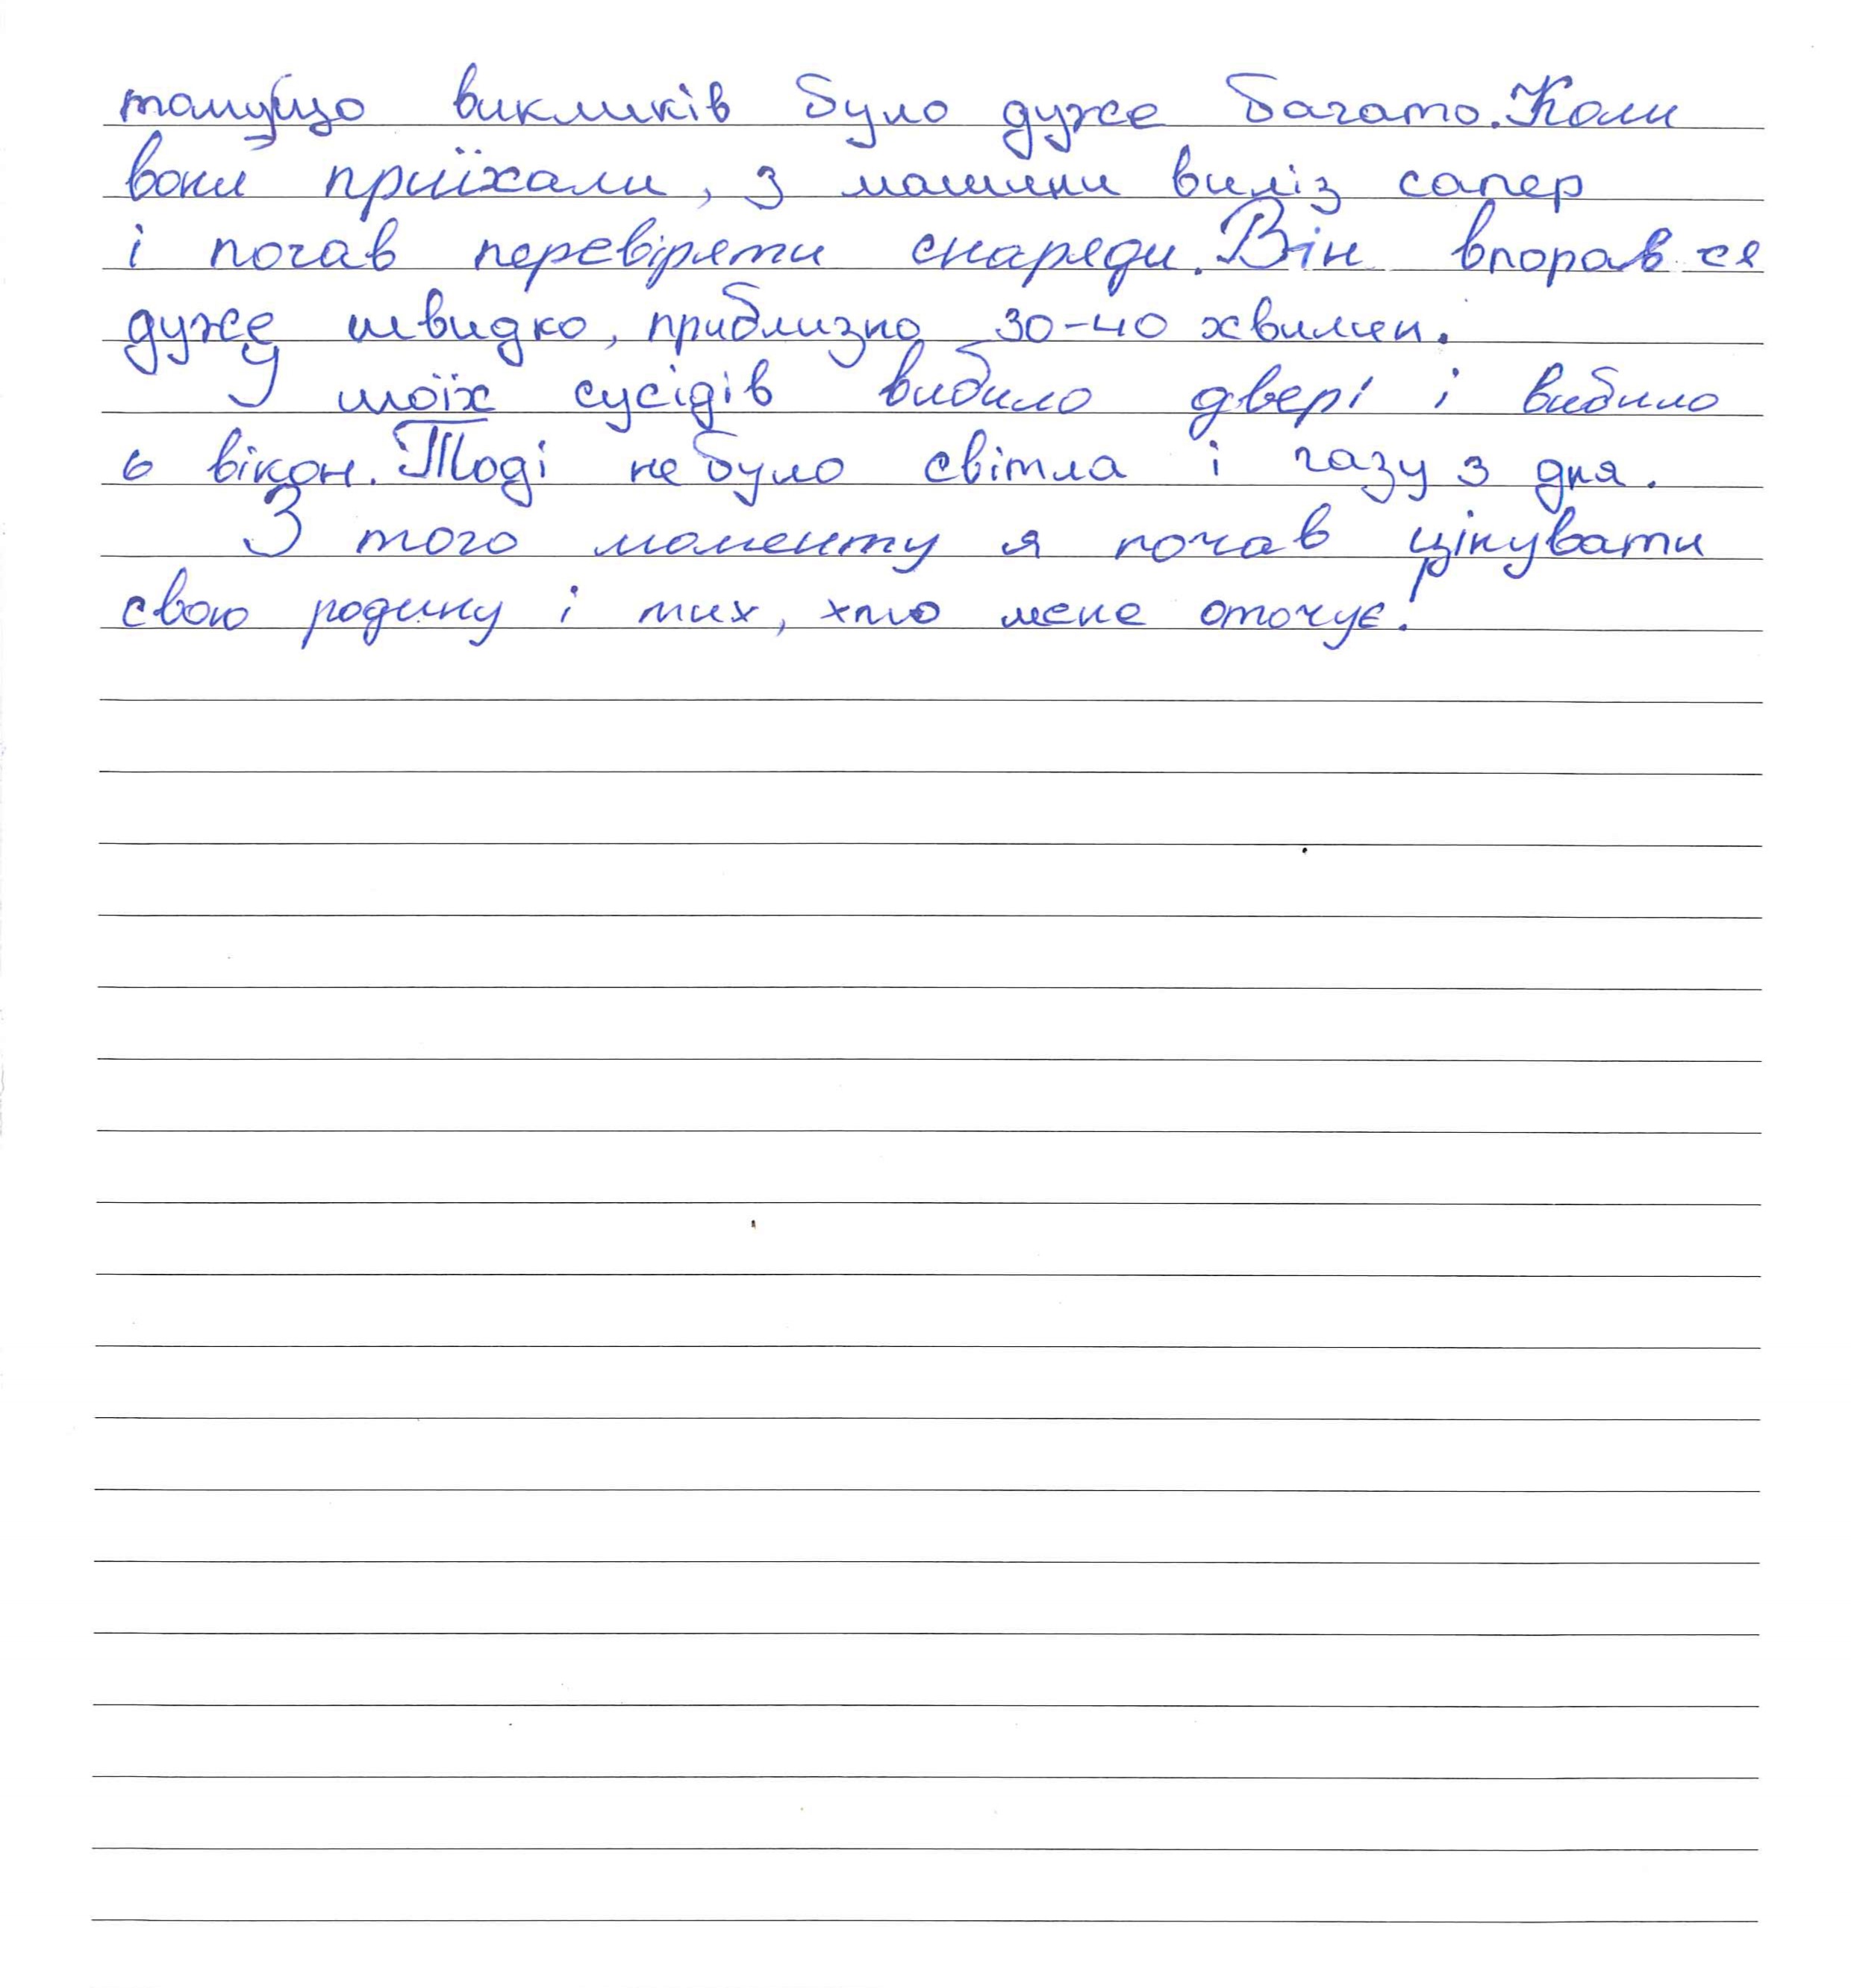 тому|що викликів було дуже багато. Коли
вони приїхали, з машини виліз сапер
і почав перевіряти снаряди. Він впорався
дуже швидко, приблизно 30-40 хвилин.
У моїх сусідів вибило двері і вибило
6 вікон. Тоді не було світла і газу 3 дня.
З того моменту я почав цінувати
свою родину і тих, хто мене оточує!